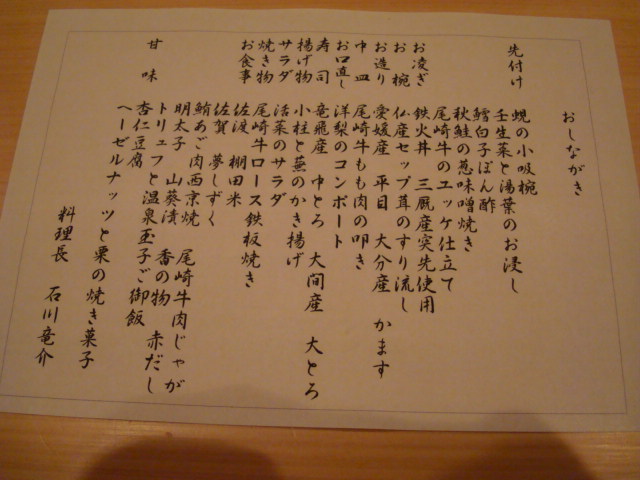 おしながき
先付け 蜆の小吸椀
壬生菜と湯葉のお浸し
鱈白子ぽん酢
秋鮭の葱味噌焼き
尾崎牛のユッケ仕立て
お凌ぎ 鉄火丼 三厩産突先使用
お椀 仏産セップ茸のすり流し
お造り 愛媛産 平目 大分産 かます
中皿 尾崎牛もも肉の叩き
お口直し 洋梨のコンポート
寿司 竜飛産 中とろ 大間産 大とろ
揚げ物 小柱と蕪のかき揚げ
サラダ 活菜のサラダ
焼き物 尾崎牛ロース鉄板焼き
お食事 佐渡 棚田米
佐賀 夢しずく
鮪あご肉西京焼 尾崎牛肉じゃが
明太子 山葵漬 香の物 赤だし
トリュフと温泉玉子ご御飯
甘味 杏仁豆腐
ヘーゼルナッツと栗の焼き菓子
料理長 石川竜介